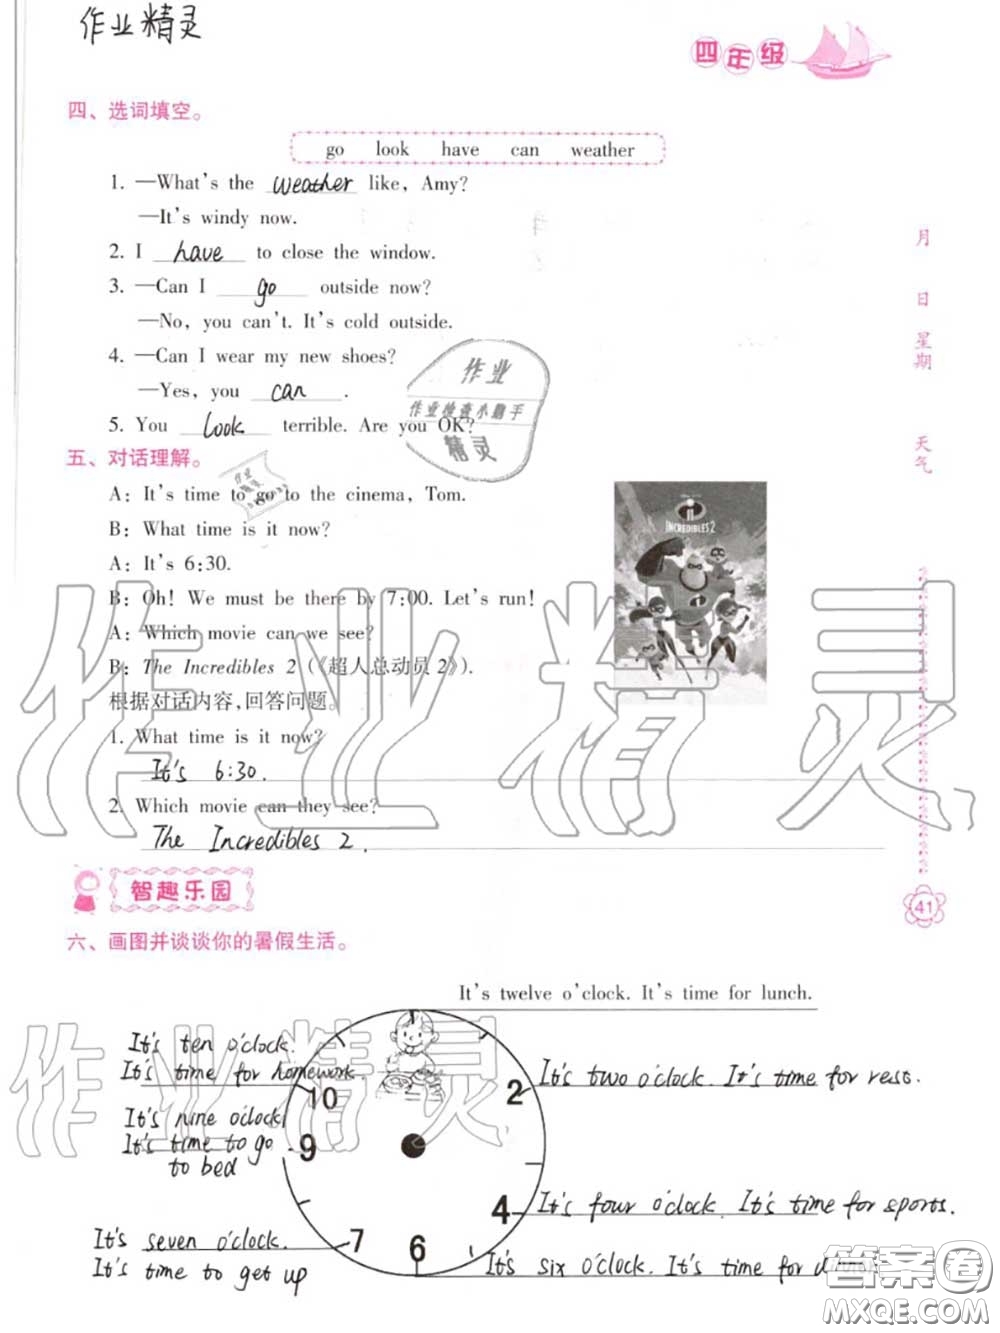 作业精灵
四年级
四、选词填空。
go look have can weather
1. —What's the weather like, Amy?
—It's windy now.
2. I have to close the window.
3. —Can I go outside now?
—No, you can't. It's cold outside.
4. —Can I wear my new shoes?
—Yes, you can.
5. You look terrible. Are you OK?
作业
作业检查小助手
精灵
月
日
星期
天气
五、对话理解。
A: It's time to go to the cinema, Tom.
B: What time is it now?
A: It's 6:30.
B: Oh! We must be there by 7:00. Let's run!
A: Which movie can we see?
B: The Incredibles 2 (《超人总动员2》).
INCREDIBLES 2
根据对话内容,回答问题。
1. What time is it now?
It's 6:30.
2. Which movie can they see?
The Incredibles 2.
作业精灵
智趣乐园
41
六、画图并谈谈你的暑假生活。
It's twelve o'clock. It's time for lunch.
It's ten o'clock.
It's time for homework.
10
2
It's two o'clock. It's time for rest.
It's nine o'clock
It's time to go
to bed
9
4
It's four o'clock. It's time for sports.
It's seven o'clock.
It's time to get up
7
6
It's six o'clock. It's time for dinner
作业精灵
答案圈
MXQE.COM